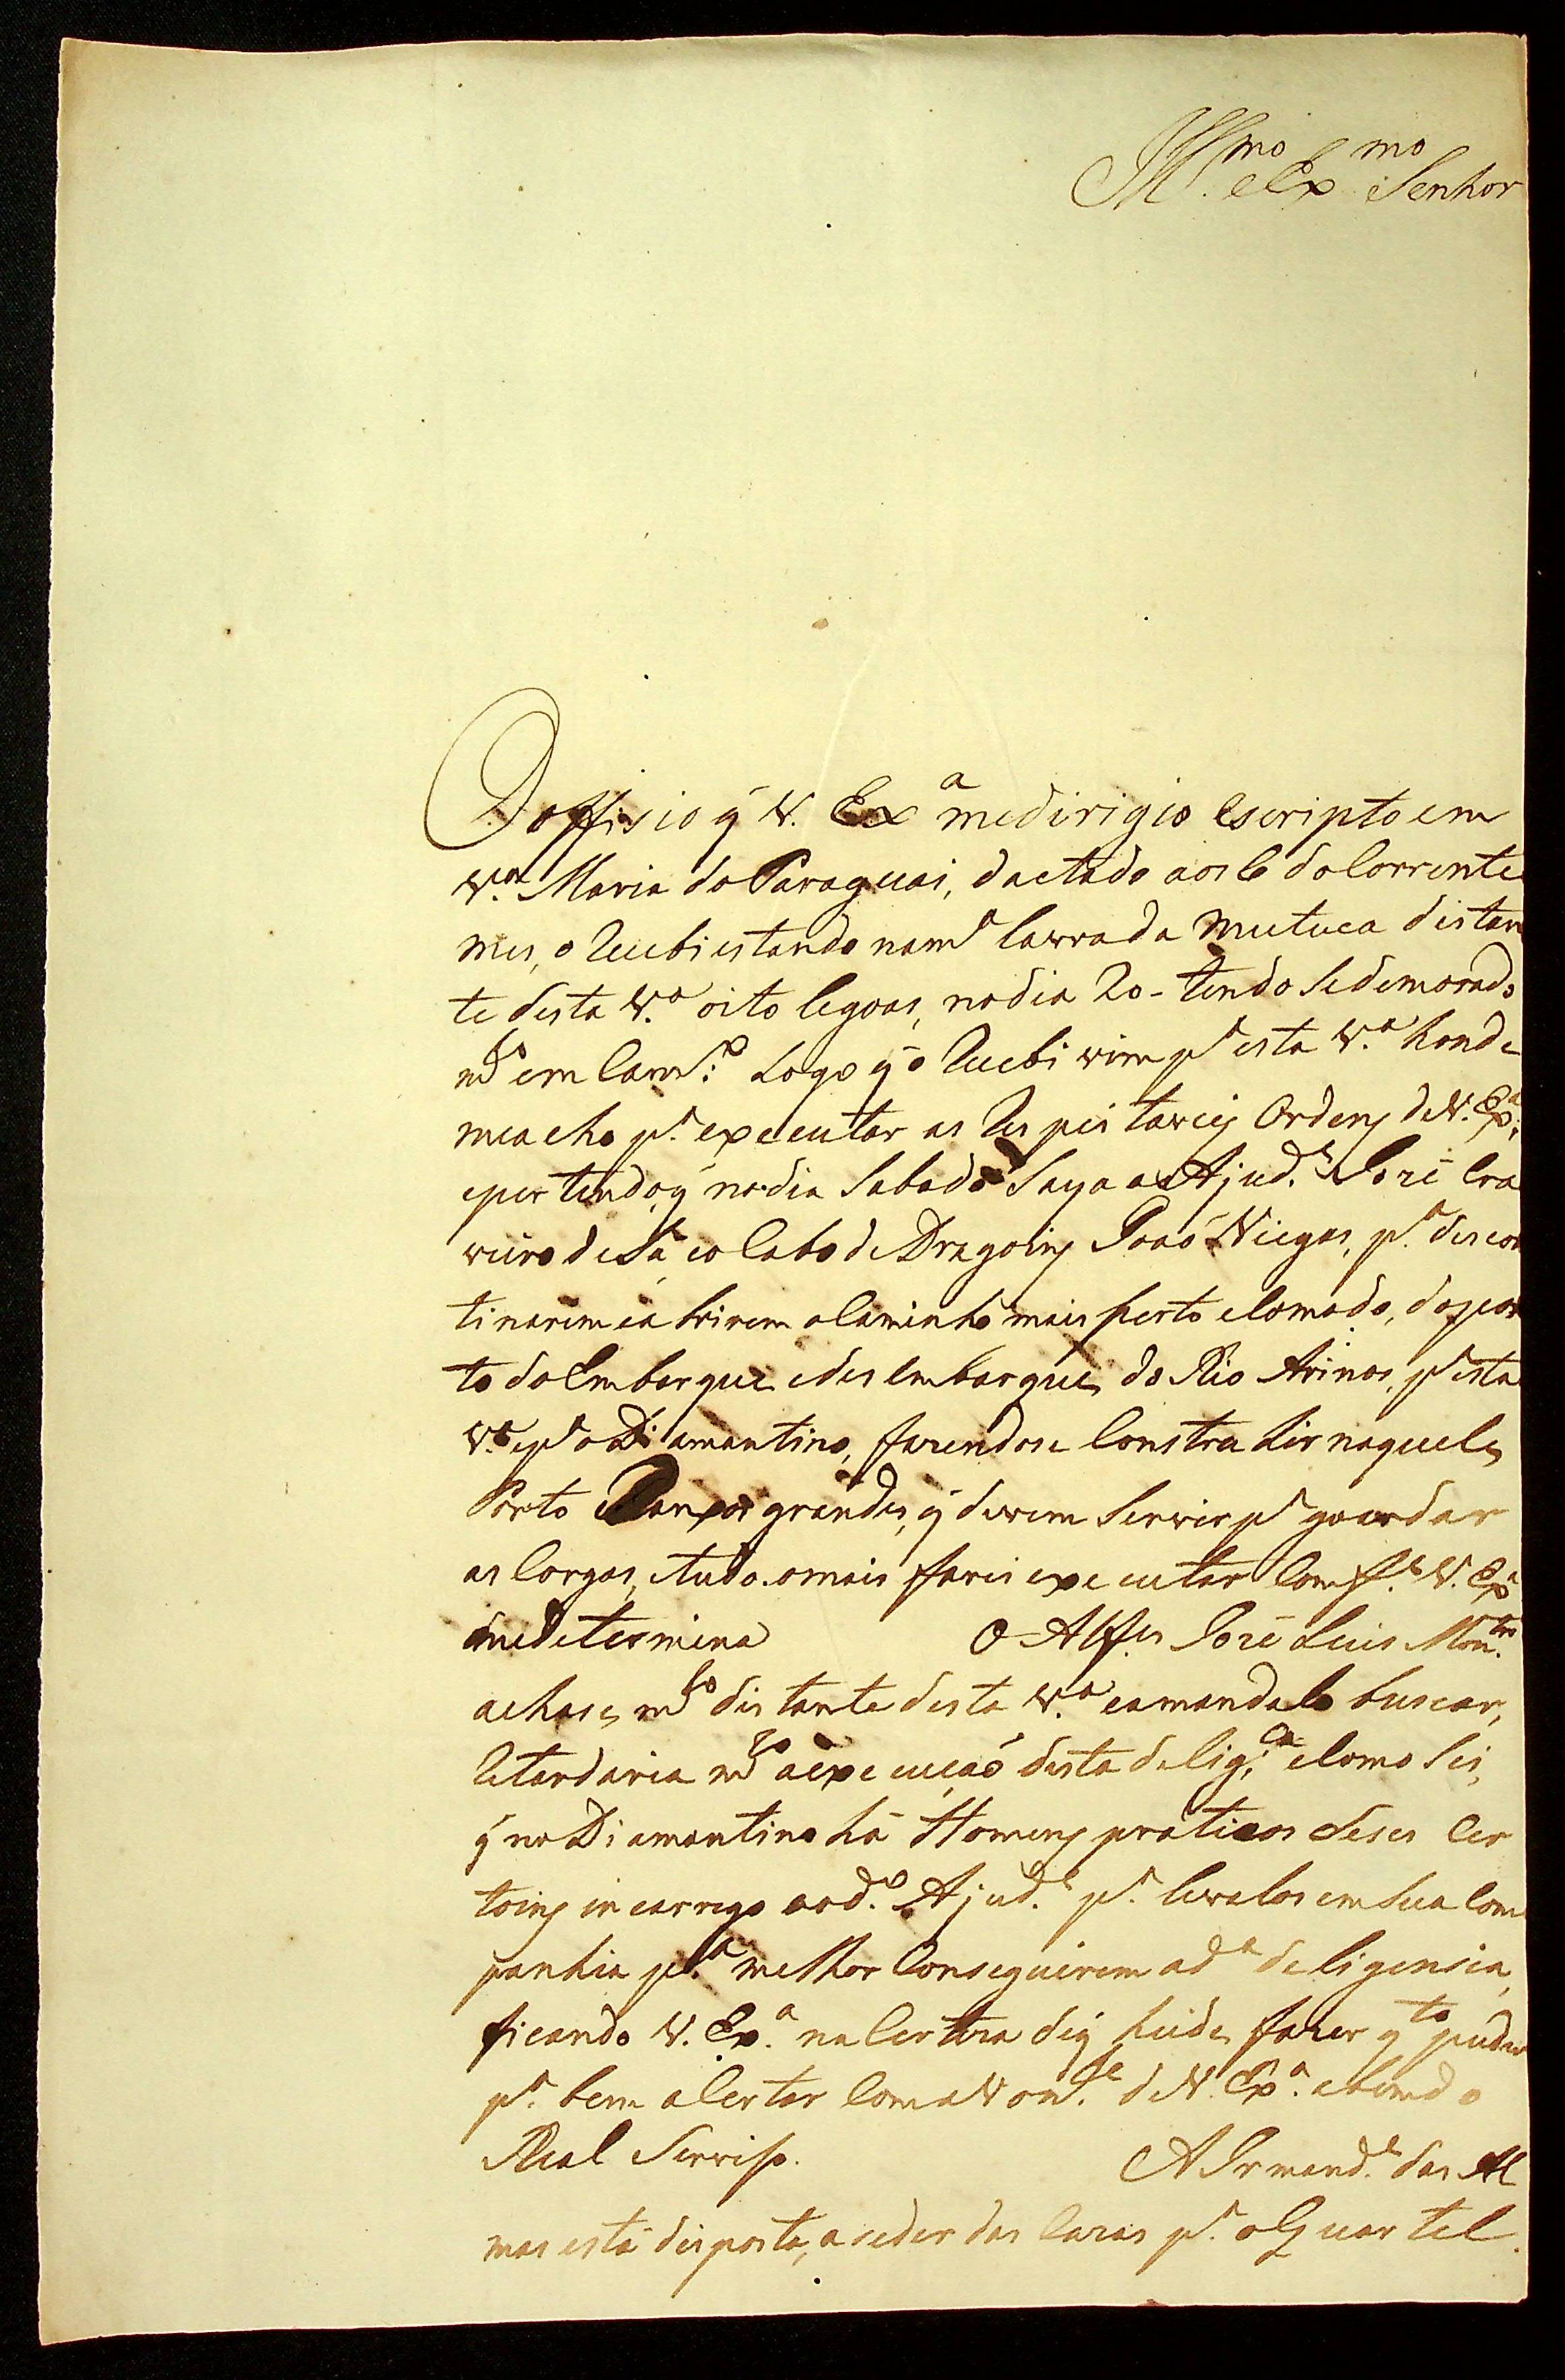 Illmo. e Exmo. Senhor
O offisio q̃ V. Exa. medirigio escripto em
Va. Maria do Paraguai, dactado aos 6 do Corrente
mes, o Recebi estando na ma. lavra da Mutuca distan
te desta Va. oito legoas, no dia 20 - tendo Sedemorado
mto. em Camo. Logo q̃ o Recebi vim pa. esta Va. honde
meacho pa. executar as Respeitaveis Ordens de V. Exa.,
epertendo q̃ no dia Sabado Saya o Ajude. Jozé Cra
veiro de Sá eo Cabo de Dragoins Joaõ Viegas, pa. descor
tinarem eabrirem o Caminho mais perto eComodo, do por
to do Embarque edesembarque, do Rio Arinos, pa. esta
Va. epa. o Diamantino, fazendose Constrahir naquele
Porto Ranxos grandes, q̃ devem Servir pa. goardar
as Cargas, etudo omais farei executar Comfe. V. Exa.
medetermina O Alfes. Jozé Luis Montro.
achase mto. distante desta Va. eamandalo buscar,
Retardaria mto. aexecucaõ desta deliga. eComo Sei,
q̃ no Diamantino há Homens praticos deses Cer
toins incarrego aodo. Ajude. pa. levalos em Sua Com
panhia pa. melhor Conseguirem ada. deligensia,
ficando V. Exa. na Certeza diq̃ heide fazer qto. puder
pa. bem aCertar Coma Vonte. de V. Exa. ebemdo
Real Serviso. A Irmande. das Al
mas está disposta, aseder das Cazas pa. oQuartel.